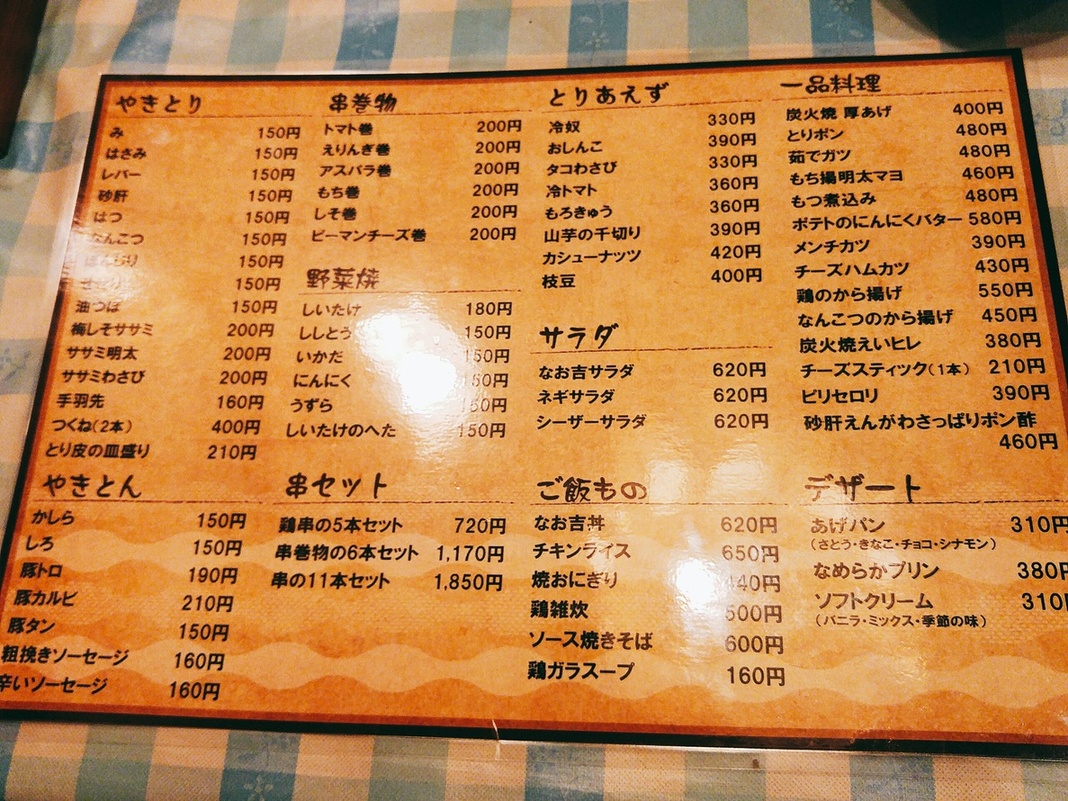 やきとり
み 150円
はさみ 150円
レバー 150円
砂肝 150円
はつ 150円
なんこつ 150円
ぼんじり 150円
せせり 150円
油つぼ 150円
梅しそササミ 200円
ササミ明太 200円
ササミわさび 200円
手羽先 160円
つくね(2本) 400円
とり皮の皿盛り 210円
やきとん
かしら 150円
しろ 150円
豚トロ 190円
豚カルビ 210円
豚タン 150円
粗挽きソーセージ 160円
辛いソーセージ 160円
串巻物
トマト巻 200円
えりんぎ巻 200円
アスパラ巻 200円
もち巻 200円
しそ巻 200円
ピーマンチーズ巻 200円
野菜焼
しいたけ 180円
ししとう 150円
いかだ 150円
にんにく 50円
うずら 50円
しいたけのへた 150円
串セット
鶏串の5本セット 720円
串巻物の6本セット 1,170円
串の11本セット 1,850円
とりあえず
冷奴 330円
おしんこ 390円
タコわさび 330円
冷トマト 360円
もろきゅう 360円
山芋の千切り 390円
カシューナッツ 420円
枝豆 400円
サラダ
なお吉サラダ 620円
ネギサラダ 620円
シーザーサラダ 620円
ご飯もの
なお吉丼 620円
チキンライス 650円
焼おにぎり 40円
鶏雑炊 500円
ソース焼きそば 600円
鶏ガラスープ 160円
一品料理
炭火焼 厚あげ 400円
とりポン 480円
茹でガツ 480円
もち揚明太マヨ 460円
もつ煮込み 480円
ポテトのにんにくバター 580円
メンチカツ 390円
チーズハムカツ 430円
鶏のから揚げ 550円
なんこつのから揚げ 450円
炭火焼えいヒレ 380円
チーズスティック(1本) 210円
ピリセロリ 390円
砂肝えんがわさっぱりポン酢
460円
デザート
あげパン 310円
(さとう・きなこ・チョコ・シナモン)
なめらかプリン 380円
ソフトクリーム 310円
(バニラ・ミックス・季節の味)